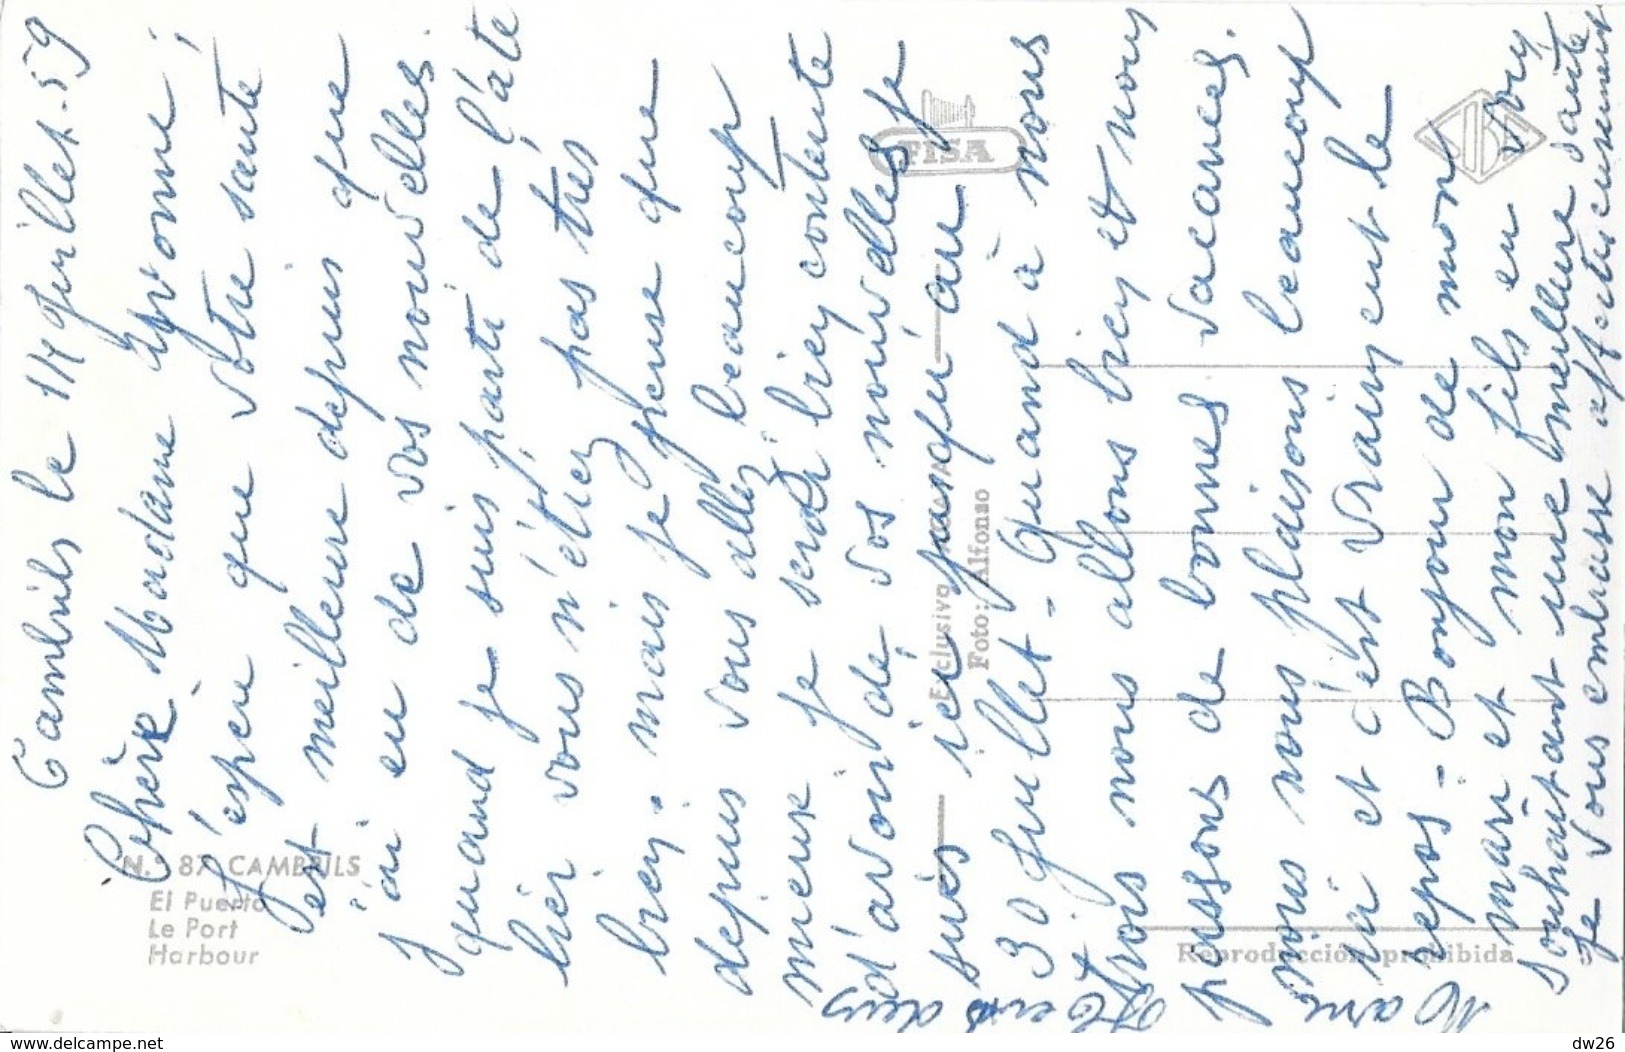 Cambrils le 14 Juillet. 59
Chère Madame Yvonne,
J'espère que votre santé
est meilleure depuis que
j'ai eu de vos nouvelles.
quand je suis parti de l'ate
lier vous n'étiez pas très
bien. mais je pense que
depuis vous allez beaucoup
mieux je serai bien contente
d'avoir de vos nouvelles je
suis ici jusqu'au
30 Juillet - Quand à nous
trois nous allons bien et nous
passons de bonnes vacances.
nous nous plaisons beaucoup
ici et c'est vraiment le
repos - Bonjour de mon
mari et mon fils en vous
souhaitant une meilleure santé
je vous embrasse affectueusement
N. 87 CAMBRILS
El Puerto
Le Port
Harbour
FISA
Exclusiva
Foto: Alfonso
Reproducción prohibida
www.delcampe.net
dw26